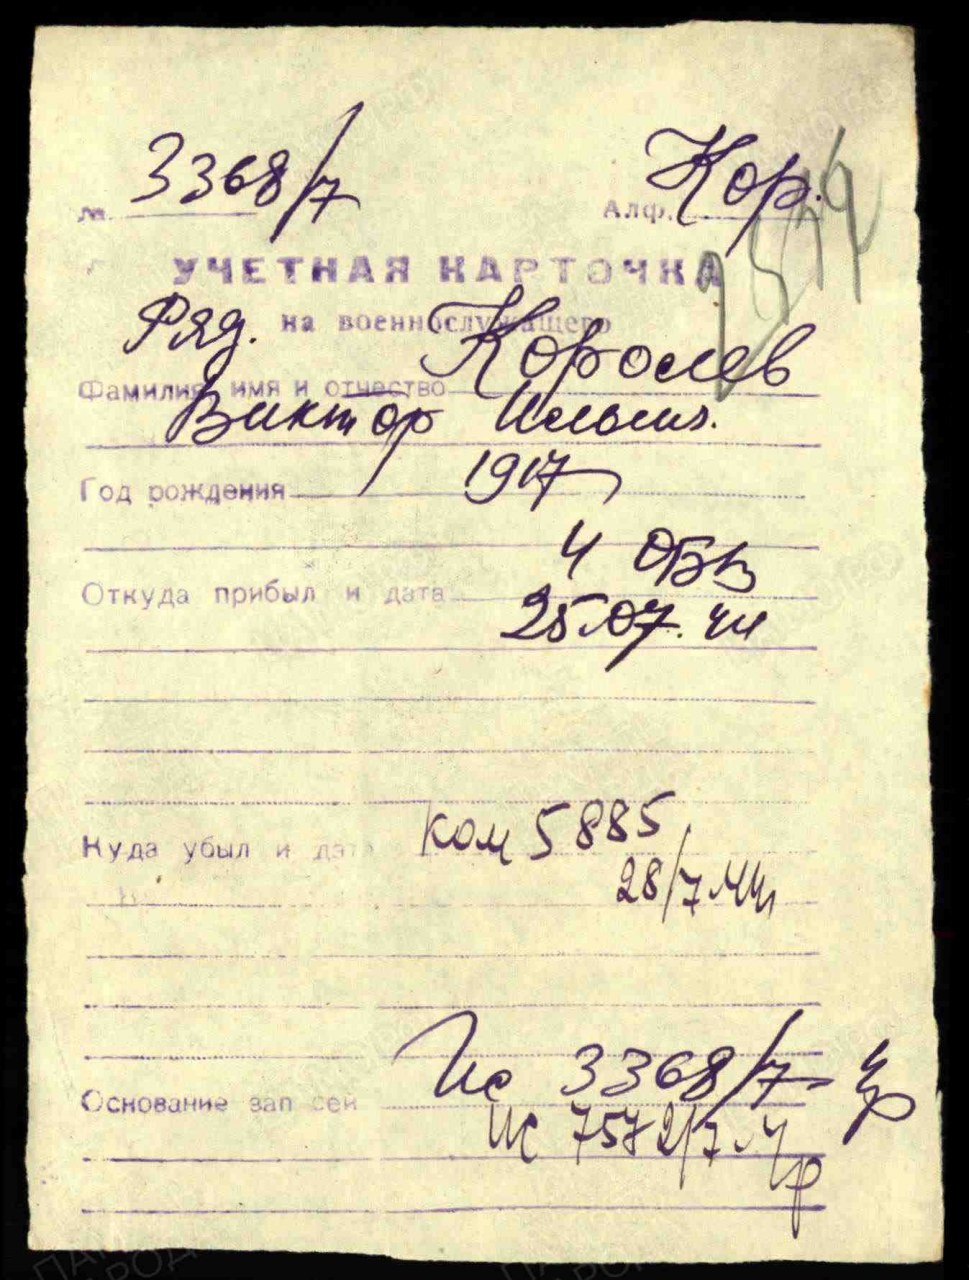 № 3368/7 Алф. Кор.
УЧЕТНАЯ КАРТОЧКА
Ряд. на военнослужащего
Фамилия, имя и отчество Королев
Виктор Ильич.
Год рождения 1917
4 ОБВ
Откуда прибыл и дата
25.07.44
Куда убыл и дата ком 5885
28/7
Ис 3368/7
Основание записей
ис 7572/7